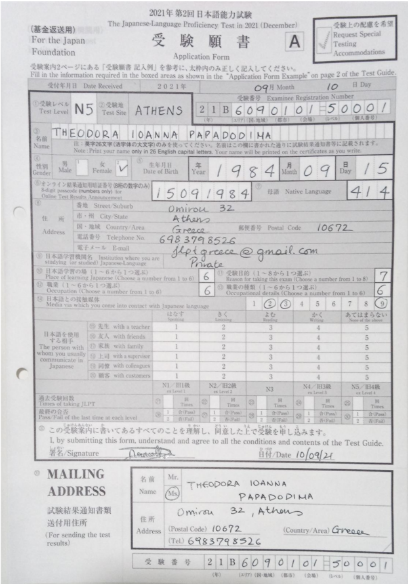 2021年 第2回 日本語能力試験
(基金返送用)
The Japanese-Language Proficiency Test in 2021 (December)
For the Japan
Foundation
受験願書
Application Form
A
受験上の配慮を希望
Request Special
Testing
Accommodations
Fill in the information required in the boxed areas as shown in the "Application Form Example" on page 2 of the Test Guide.
受付年月日 Date Received 2021年 09月 Month 10日 Day
受験レベル
Test Level N5
受験地
Test Site ATHENS
受験番号 Examinee Registration Number
21B6090101-50001
氏名
Name
THEODORA IOANNA PAPADODIMA
性別
Gender
男
Male
女
Female ✓
生年月日
Date of Birth
年
Year 1984
月
Month 09
日
Day 15
15091984
母語 Native Language 414
住所
Address
番地 Street/Suburb Omirou 32
市・州 City/State Athens
国・地域 Country/Area Greece
郵便番号 Postal Code 10672
電話番号 Telephone No. 6983798526
電子メール E-mail jlptgreece@gmail.com
Private
Place of learning Japanese (Choose a number from 1 to 6) 6
Reason for taking this exam 7
6
Occupational details (Choose a number from 1 to 6) 6
1 ② ③ 4 5 6 7 8 ⑨
はなす
きく
よむ
かく
あてはまらない
日本語を使用
する相手
The person with
whom you usually
communicate in
Japanese
先生 with a teacher 1 2 3 4 5
友人 with friends 1 2 3 4 5
家族 with family 1 2 3 4 5
上司 with a supervisor 1 2 3 4 5
同僚 with colleagues 1 2 3 4 5
顧客 with customers 1 2 3 4 5
過去受験回数
Times of taking JLPT
この受験案内に書いてあるすべてのことを理解し、同意した上で受験を申し込みます。
I, by submitting this form, understand and agree to all the conditions and contents of the Test Guide.
署名/Signature
日付/Date 10/09/21
MAILING
ADDRESS
試験結果通知書類
送付用住所
(For sending the test
results)
氏名
Name
Mr.
Ms.
THEODORA IOANNA
PAPADODIMA
住所
Address
Omirou 32, Athens
(Postal Code) 10672
(Country/Area) Greece
(Tel) 6983798526
受験番号 21B6090101-50001